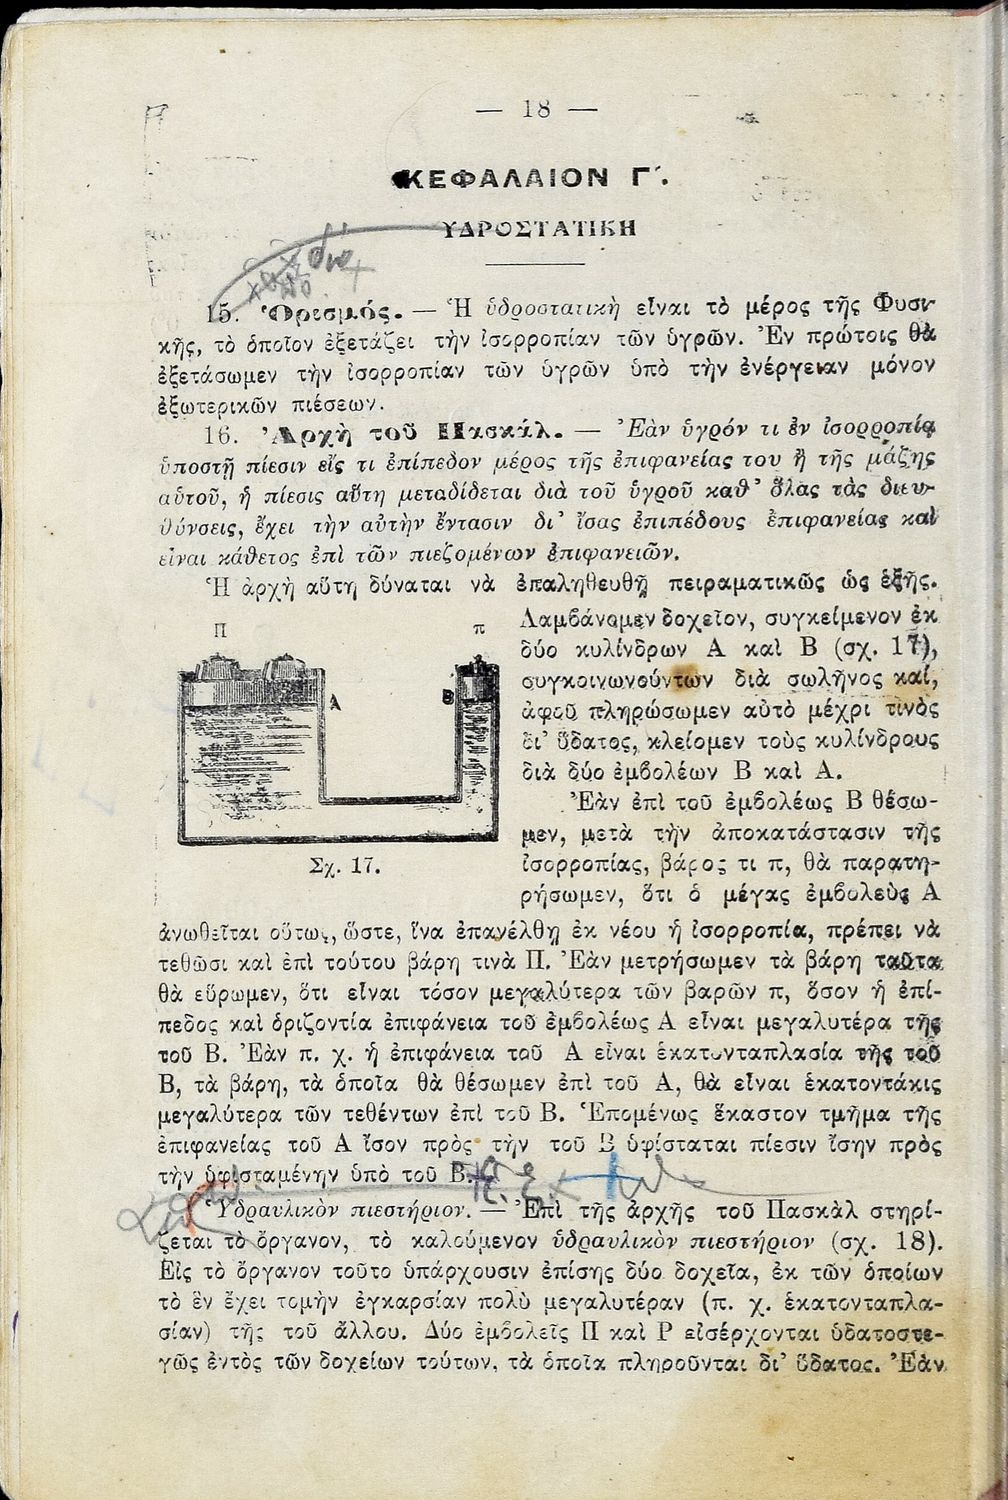 — 18 —
ΚΕΦΑΛΑΙΟΝ Γ΄.
ΥΔΡΟΣΤΑΤΙΚΗ
15. Ὁρισμός. — Ἡ ὑδροστατικὴ εἶναι τὸ μέρος τῆς Φυσι-
κῆς, τὸ ὁποῖον ἐξετάζει τὴν ἰσορροπίαν τῶν ὑγρῶν. Ἐν πρώτοις θὰ
ἐξετάσωμεν τὴν ἰσορροπίαν τῶν ὑγρῶν ὑπὸ τὴν ἐνέργειαν μόνον
ἐξωτερικῶν πιέσεων.
16. Ἀρχὴ τοῦ Πασκάλ. — Ἐὰν ὑγρόν τι ἐν ἰσορροπίᾳ
ὑποστῇ πίεσιν εἴς τι ἐπίπεδον μέρος τῆς ἐπιφανείας του ἢ τῆς μάζης
αὐτοῦ, ἡ πίεσις αὕτη μεταδίδεται διὰ τοῦ ὑγροῦ καθ' ὅλας τὰς διευ-
θύνσεις, ἔχει τὴν αὐτὴν ἔντασιν δι' ἴσας ἐπιπέδους ἐπιφανείας καὶ
εἶναι κάθετος ἐπὶ τῶν πιεζομένων ἐπιφανειῶν.
Ἡ ἀρχὴ αὕτη δύναται νὰ ἐπαληθευθῇ πειραματικῶς ὡς ἑξῆς.
Λαμβάνομεν δοχεῖον, συγκείμενον ἐκ
δύο κυλίνδρων Α καὶ Β (σχ. 17),
συγκοινωνούντων διὰ σωλῆνος καί,
ἀφοῦ πληρώσωμεν αὐτὸ μέχρι τινὸς
δι' ὕδατος, κλείομεν τοὺς κυλίνδρους
διὰ δύο ἐμβολέων Β καὶ Α.
Ἐὰν ἐπὶ τοῦ ἐμβολέως Β θέσω-
μεν, μετὰ τὴν ἀποκατάστασιν τῆς
ἰσορροπίας, βάρος τι π, θὰ παρατη-
ρήσωμεν, ὅτι ὁ μέγας ἐμβολεὺς Α
Π
π
Α
Β
Σχ. 17.
ἀνωθεῖται οὕτως, ὥστε, ἵνα ἐπανέλθῃ ἐκ νέου ἡ ἰσορροπία, πρέπει νὰ
τεθῶσι καὶ ἐπὶ τούτου βάρη τινὰ Π. Ἐὰν μετρήσωμεν τὰ βάρη ταῦτα
θὰ εὕρωμεν, ὅτι εἶναι τόσον μεγαλύτερα τῶν βαρῶν π, ὅσον ἡ ἐπί-
πεδος καὶ ὁριζοντία ἐπιφάνεια τοῦ ἐμβολέως Α εἶναι μεγαλυτέρα τῆς
τοῦ Β. Ἐὰν π. χ. ἡ ἐπιφάνεια τοῦ Α εἶναι ἑκατονταπλασία τῆς τοῦ
Β, τὰ βάρη, τὰ ὁποῖα θὰ θέσωμεν ἐπὶ τοῦ Α, θὰ εἶναι ἑκατοντάκις
μεγαλύτερα τῶν τεθέντων ἐπὶ τοῦ Β. Ἑπομένως ἕκαστον τμῆμα τῆς
ἐπιφανείας τοῦ Α ἴσον πρὸς τὴν τοῦ Β ὑφίσταται πίεσιν ἴσην πρὸς
τὴν ὑφισταμένην ὑπὸ τοῦ Β.
Ὑδραυλικὸν πιεστήριον. — Ἐπὶ τῆς ἀρχῆς τοῦ Πασκὰλ στηρί-
ζεται τὸ ὄργανον, τὸ καλούμενον ὑδραυλικὸν πιεστήριον (σχ. 18).
Εἰς τὸ ὄργανον τοῦτο ὑπάρχουσιν ἐπίσης δύο δοχεῖα, ἐκ τῶν ὁποίων
τὸ ἓν ἔχει τομὴν ἐγκαρσίαν πολὺ μεγαλυτέραν (π. χ. ἑκατονταπλα-
σίαν) τῆς τοῦ ἄλλου. Δύο ἐμβολεῖς Π καὶ Ρ εἰσέρχονται ὑδατοστε-
γῶς ἐντὸς τῶν δοχείων τούτων, τὰ ὁποῖα πληροῦνται δι' ὕδατος. Ἐὰν